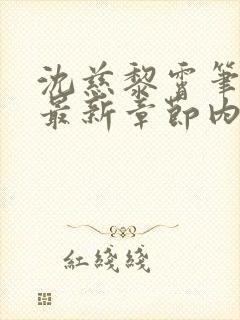 沈慈黎霄筆
最新章節內
紅綫綫